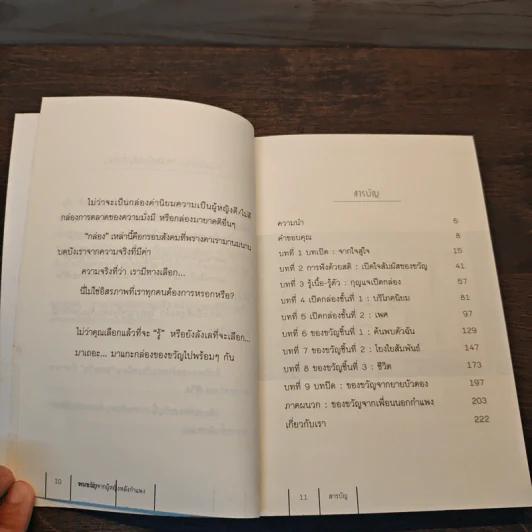 ไม่ว่าจะเป็นกล่องค่านิยมความเป็นผู้หญิงดี/ไม่ดี
กล่องการตลาดของความมั่งมี หรือกล่องมายาคติอื่นๆ
"กล่อง" เหล่านี้คือกรอบสังคมที่พรางตาเรามานมนาน
บดบังเราจากความจริงที่มีค่า
ความจริงที่ว่า เรามีทางเลือก...
นี่ไม่ใช่อิสรภาพที่เราทุกคนต้องการหรอกหรือ?
ไม่ว่าคุณเลือกแล้วที่จะ "รู้" หรือยังลังเลที่จะเลือก...
มาเถอะ... มาแกะกล่องของขวัญไปพร้อมๆ กัน
10 ของขวัญจากผู้หญิงหลังกำแพง
สารบัญ
ความนำ 6
คำขอบคุณ 8
บทที่ 1 บทเปิด : จากใจสู่ใจ 15
บทที่ 2 การฟังด้วยสติ : เปิดใจสัมผัสของขวัญ 41
บทที่ 3 รู้เนื้อ-รู้ตัว : กุญแจเปิดกล่อง 57
บทที่ 4 เปิดกล่องชั้นที่ 1 : บริโภคนิยม 81
บทที่ 5 เปิดกล่องชั้นที่ 2 : เพศ 97
บทที่ 6 ของขวัญชิ้นที่ 1 : ค้นพบตัวฉัน 129
บทที่ 7 ของขวัญชิ้นที่ 2 : โยงใยสัมพันธ์ 147
บทที่ 8 ของขวัญชิ้นที่ 3 : ชีวิต 173
บทที่ 9 บทปิด : ของขวัญจากยายบัวตอง 197
ภาคผนวก : ของขวัญจากเพื่อนนอกกำแพง 203
เกี่ยวกับเรา 222
11 สารบัญ